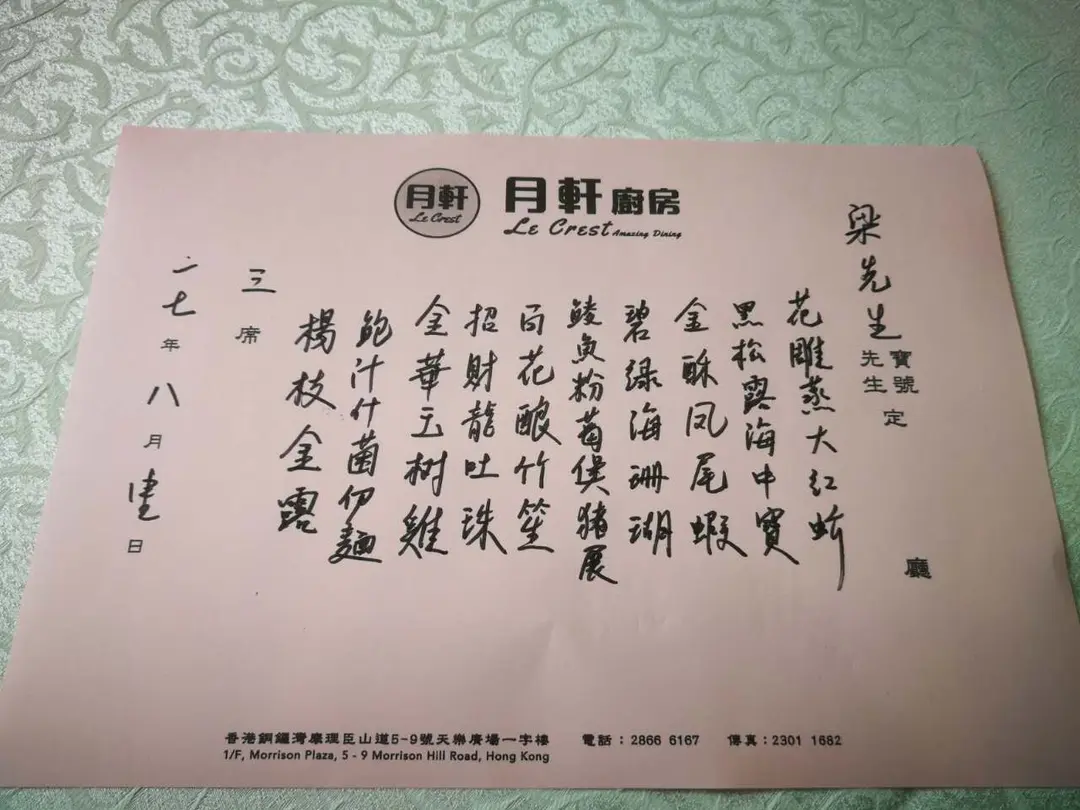 月軒
Le Crest
月軒廚房
Le Crest Amazing Dining
梁先生
寶號
先生
定
廳
花雕蒸大红蚧
黑松露海中寶
金酥凤尾蝦
碧绿海珊瑚
鲮魚粉葛煲豬展
百花酿竹笙
招財龍吐珠
金華玉树雞
鲍汁什菌伊麵
楊枝金露
三席
一七年八月日
香港銅鑼灣摩理臣山道5-9號天樂廣場一字樓 電話：2866 6167 傳真：2301 1682
1/F, Morrison Plaza, 5 - 9 Morrison Hill Road, Hong Kong